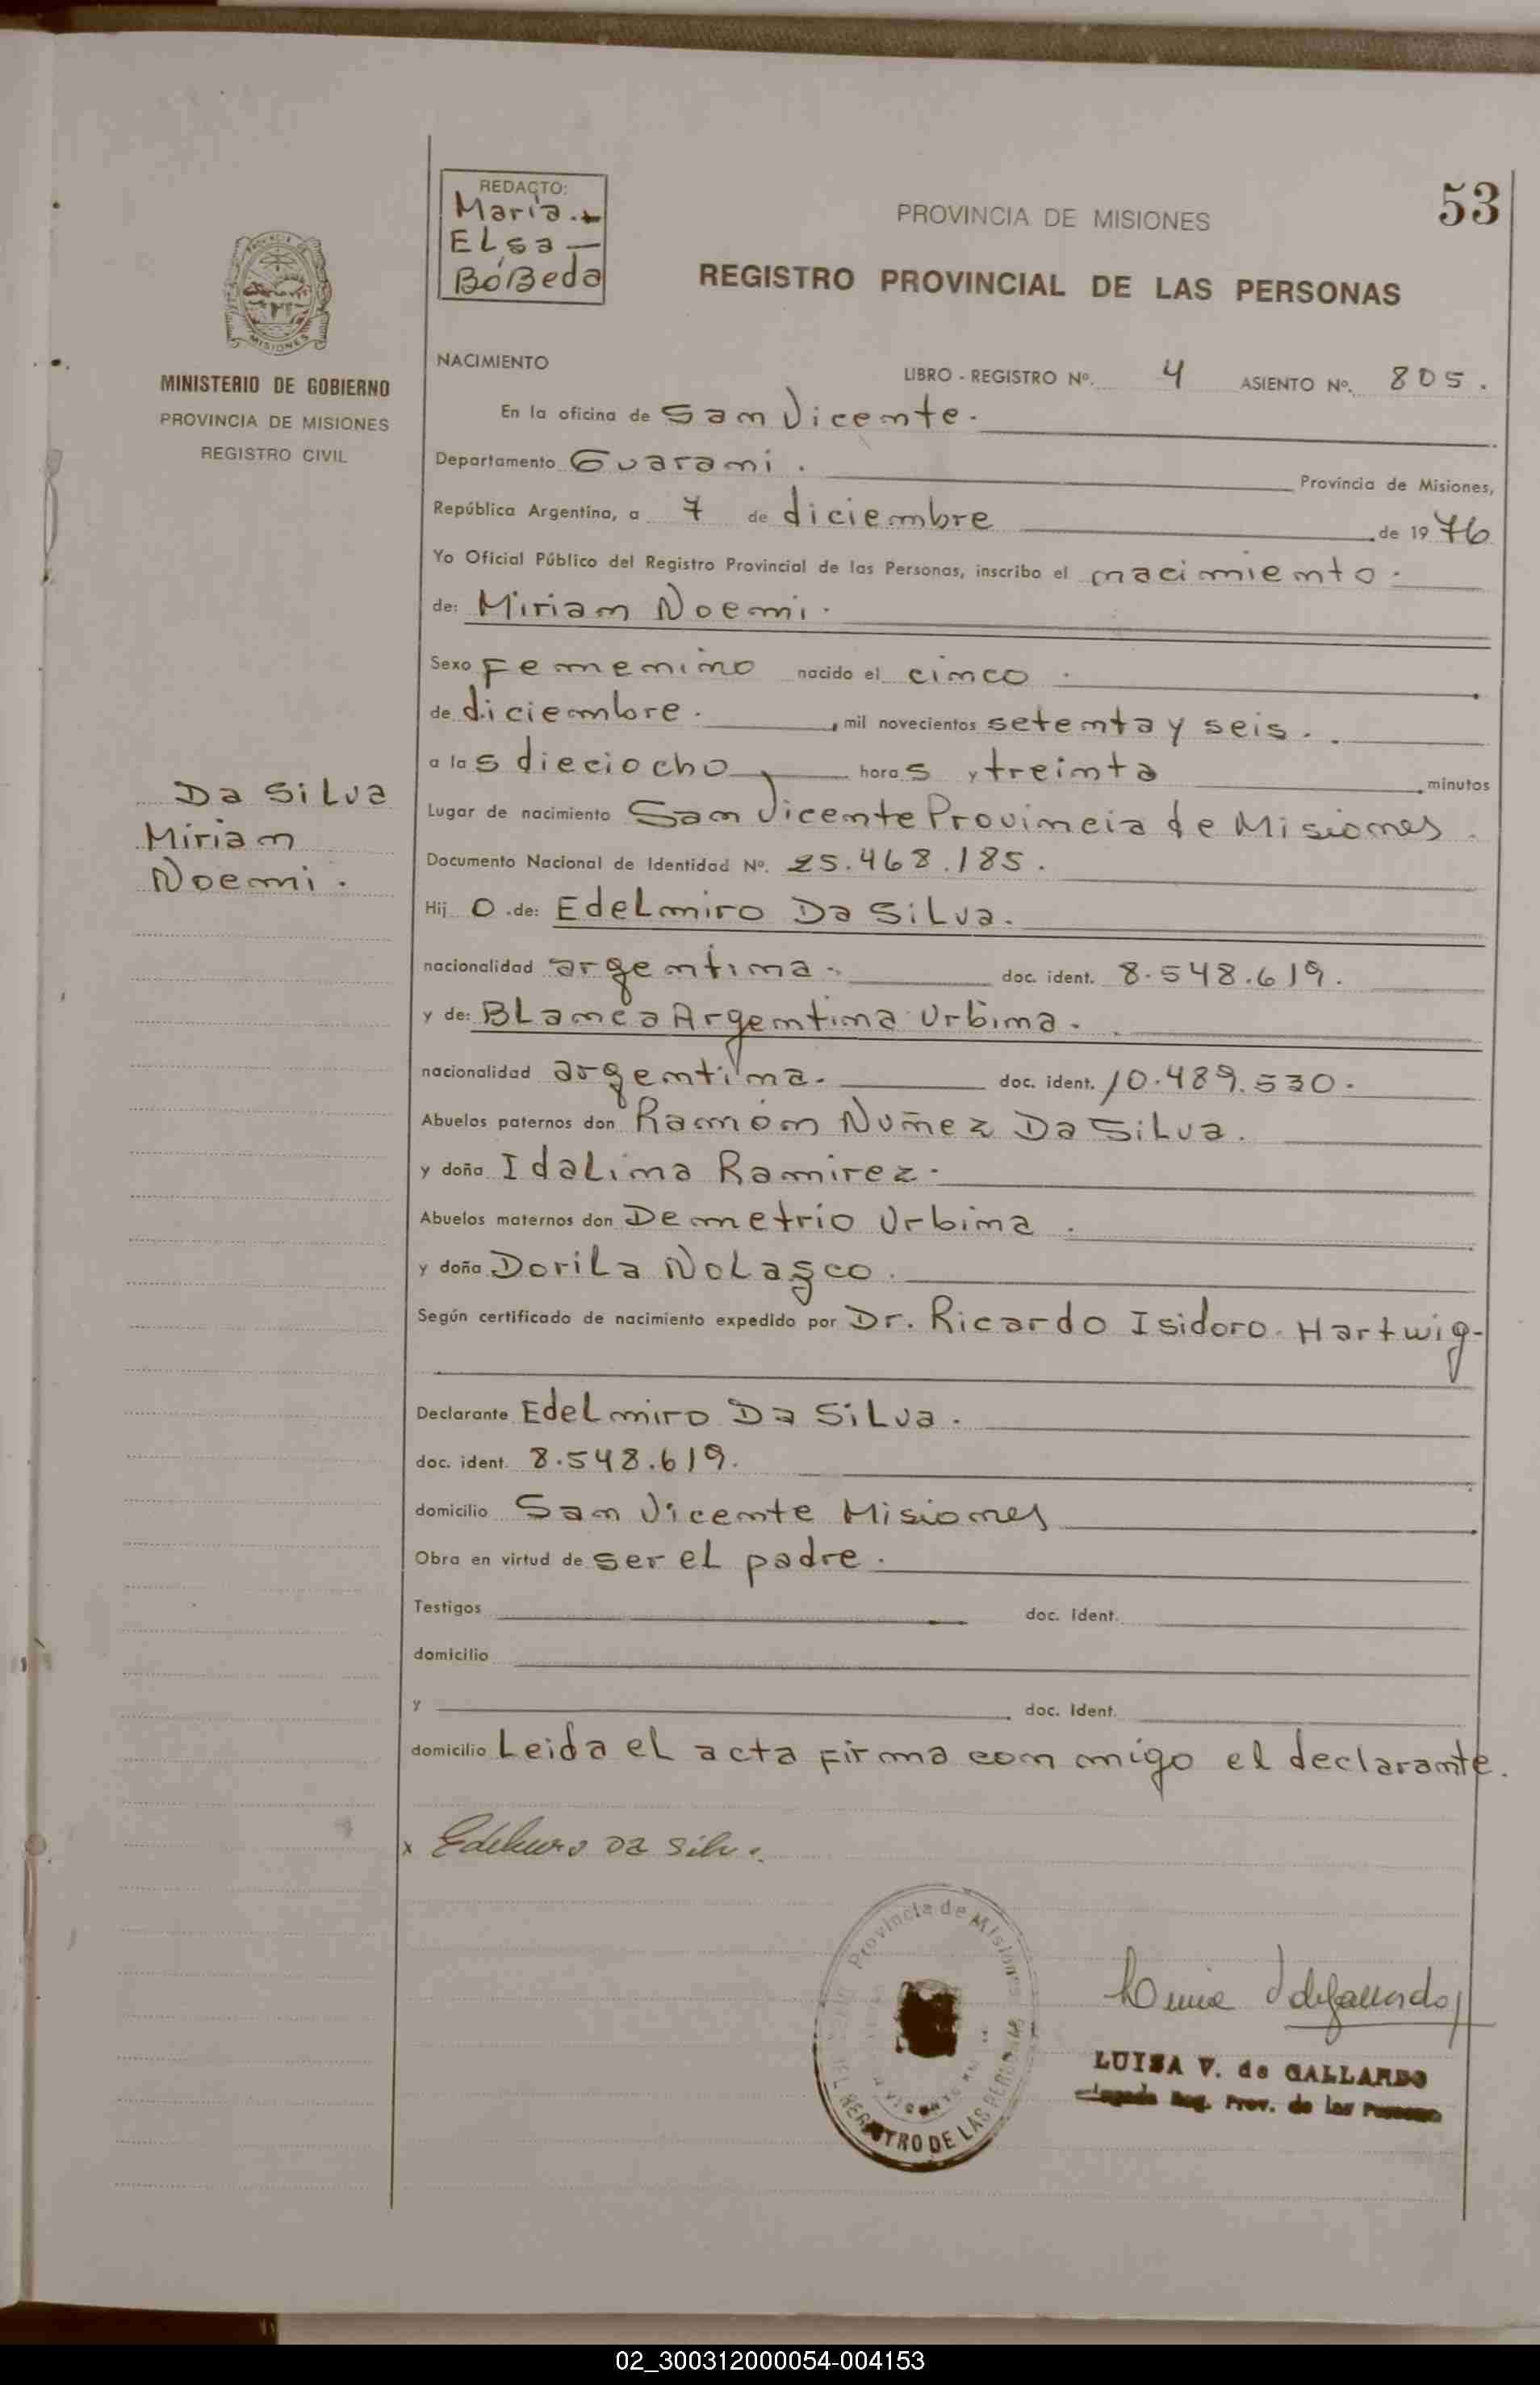 REDACTO:
Maria
Elsa
BóBeda
53
PROVINCIA DE MISIONES
REGISTRO PROVINCIAL DE LAS PERSONAS
PROVINCIA
MISIONES
MINISTERIO DE GOBIERNO
PROVINCIA DE MISIONES
REGISTRO CIVIL
NACIMIENTO
LIBRO - REGISTRO Nº. 4 ASIENTO Nº. 805.
En la oficina de San Vicente.
Departamento Guarani. Provincia de Misiones,
República Argentina, a 7 de diciembre de 1976
Yo Oficial Público del Registro Provincial de las Personas, inscribo el nacimiento.
de: Miriam Noemi.
Sexo Femenino nacido el cinco.
de diciembre. , mil novecientos setenta y seis.
a las dieciocho horas y treinta minutos
Da Silva
Miriam
Noemi.
Lugar de nacimiento San Vicente Provincia de Misiones.
Documento Nacional de Identidad Nº. 25.468.185.
Hij O .de: Edelmiro Da Silva.
nacionalidad argentina. doc. ident. 8.548.619.
y de: Blanca Argentina Urbina.
nacionalidad argentina. doc. ident. 10.489.530.
Abuelos paternos don Ramón Nuñez Da Silva.
y doña Idalina Ramirez.
Abuelos maternos don Demetrio Urbina.
y doña Dorila Nolasco.
Según certificado de nacimiento expedido por Dr. Ricardo Isidoro Hartwig-
Declarante Edelmiro Da Silva.
doc. ident. 8.548.619.
domicilio San Vicente Misiones
Obra en virtud de ser el padre.
Testigos doc. ident.
domicilio
y doc. ident.
domicilio Leida el acta firma con migo el declarante.
x Edelmiro Da Silva.
Provincia de Misiones
REGISTRO DE LAS PERSONAS
LUISA V. de GALLARDO
Reg. Prov. de las Personas
02_300312000054-004153